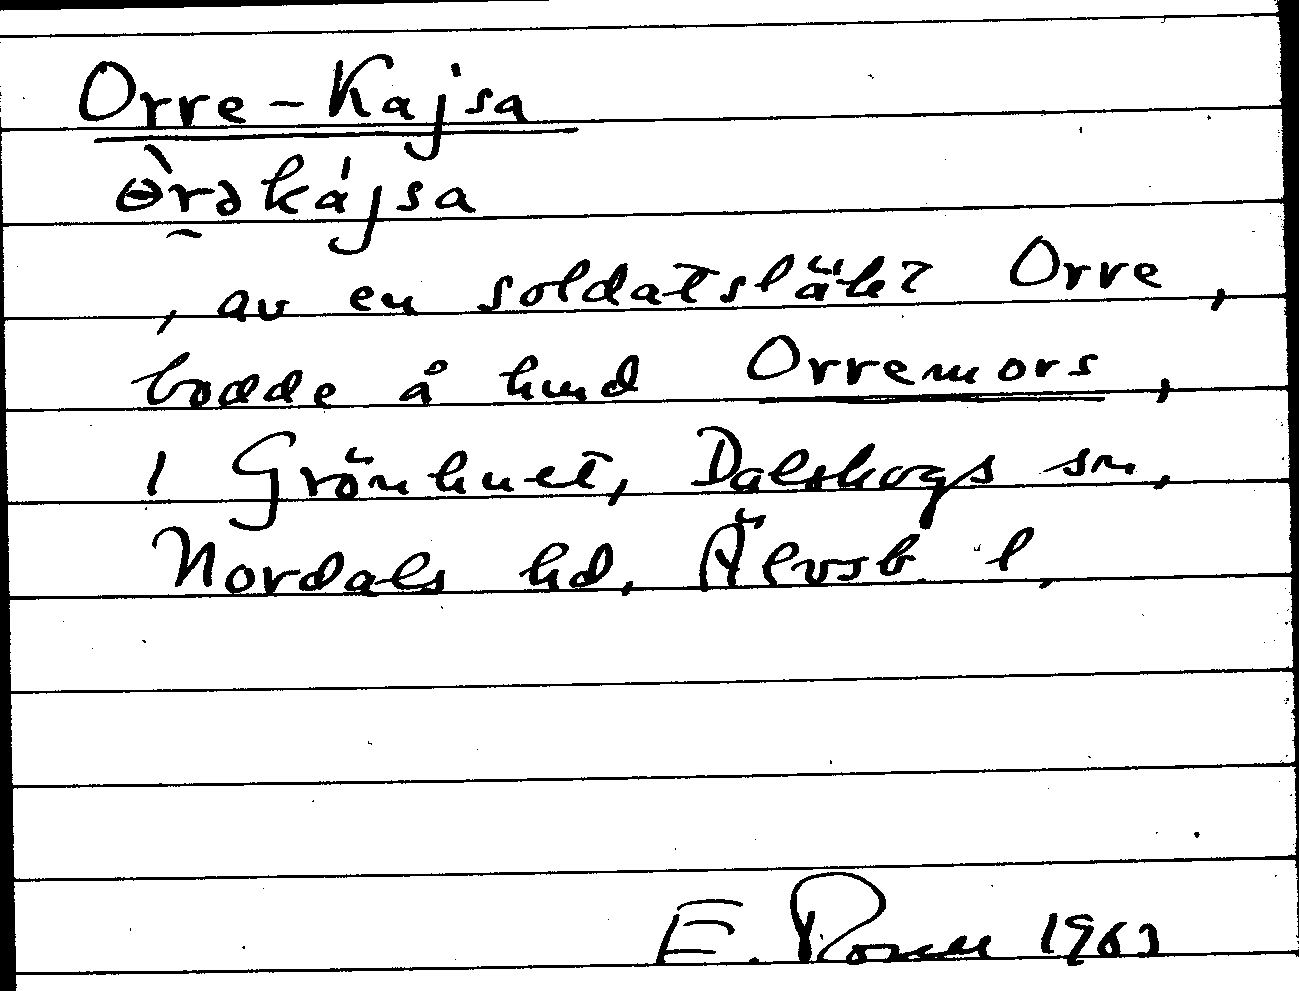 Orre-Kajsa
ɵ̀rə̰kájsa
, av en soldatsläkt Orre,
bodde å hmd Orremors,
i Grönhult, Dalskogs sn,
Nordals hd, Älvsb. l.
E. 1963